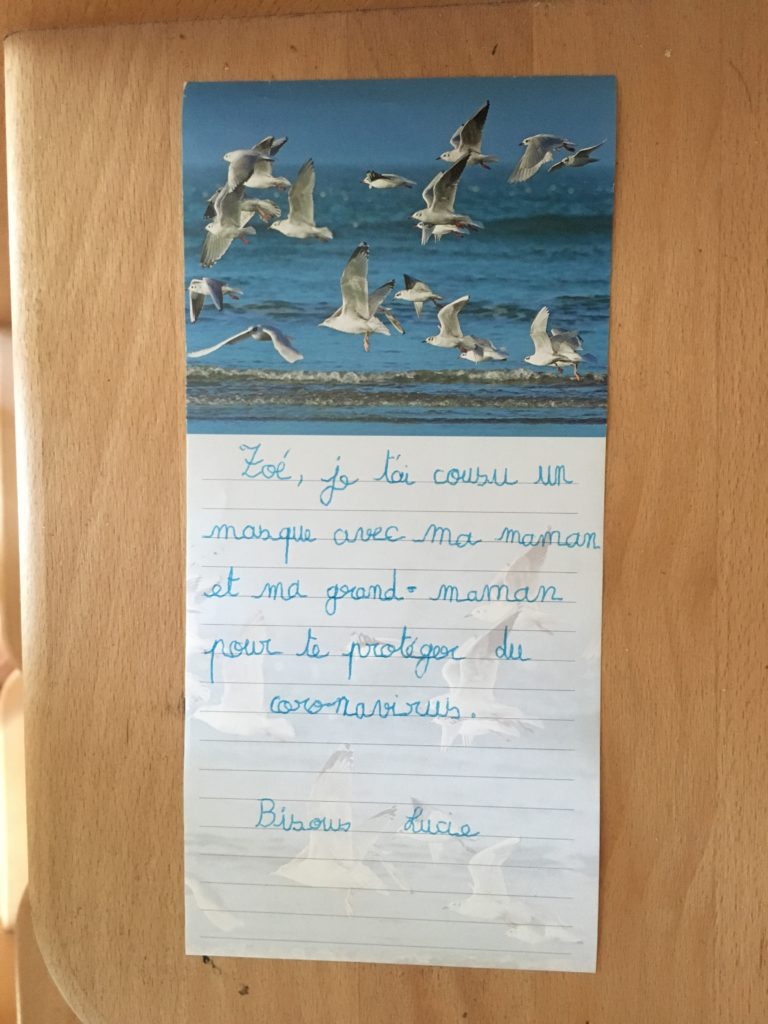 Zoé, je t'ai cousu un
masque avec ma maman
et ma grand-maman
pour te protéger du
coronavirus.
Bisous Lucie